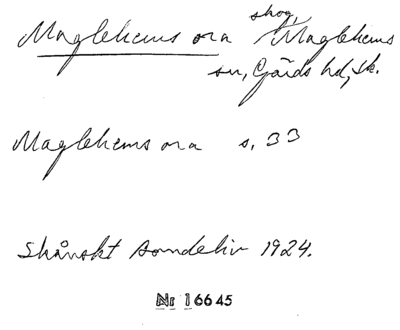 Maglehems ora skog, Maglehems
sn, Gärds hd, Sk.
Maglehems ora s. 33
Skånskt bondeliv 1924.
Nr 16645